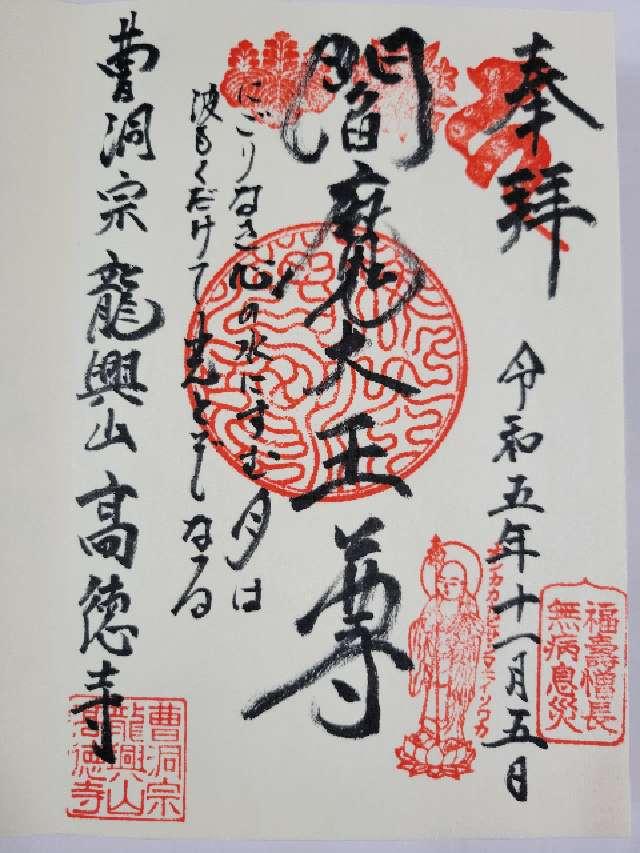 奉拝
令和五年十一月五日
福壽増長
無病息災
閻魔大王尊
にごりなき心の水にすむ月は
波もくだけて光とぞなる
曹洞宗龍興山高徳寺
曹洞宗
龍興山
高徳寺